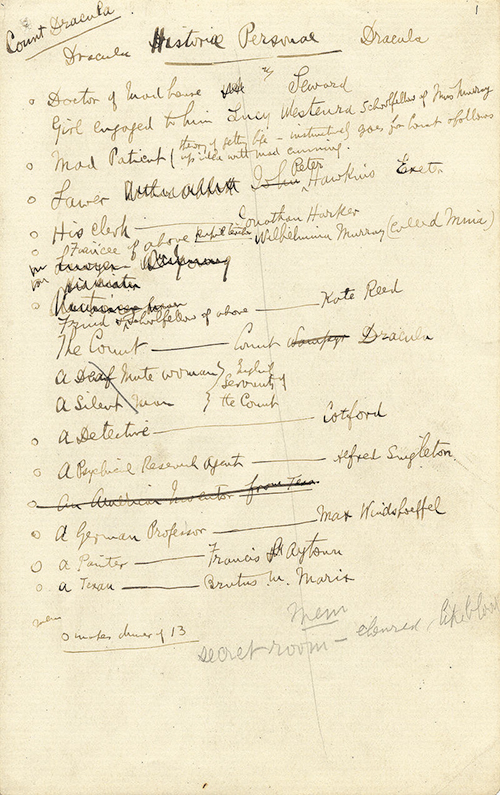 Count Dracula
1
Dracula Historiæ Personae Dracula
Doctor of Mad house Seward
Girl engaged to him Lucy Westenra schoolfellow of Miss Murray
Mad Patient (theory of getting life – instinctively goes for Count & follows
up idea with mad cunning.
Lawer John Peter Hawkins Exeter
His clerk Jonathan Harker
Fiancée of above Wilhelmina Murray (called Mina)
Lawyer
Friend & schoolfellow of above Kate Reed
The Count Count Wampyr Dracula
A Deaf Mute woman } English
A Silent Man } Servants of the Count
A Detective Cotford
A Psychical Research Agent Alfred Singleton.
An American Inventor from Texas
A German Professor Max Windshoeffel
A Painter Francis Aytown
A Texan Brutus M. Marix
mem
makes dinner of 13
Mem
secret room – coloured like blood